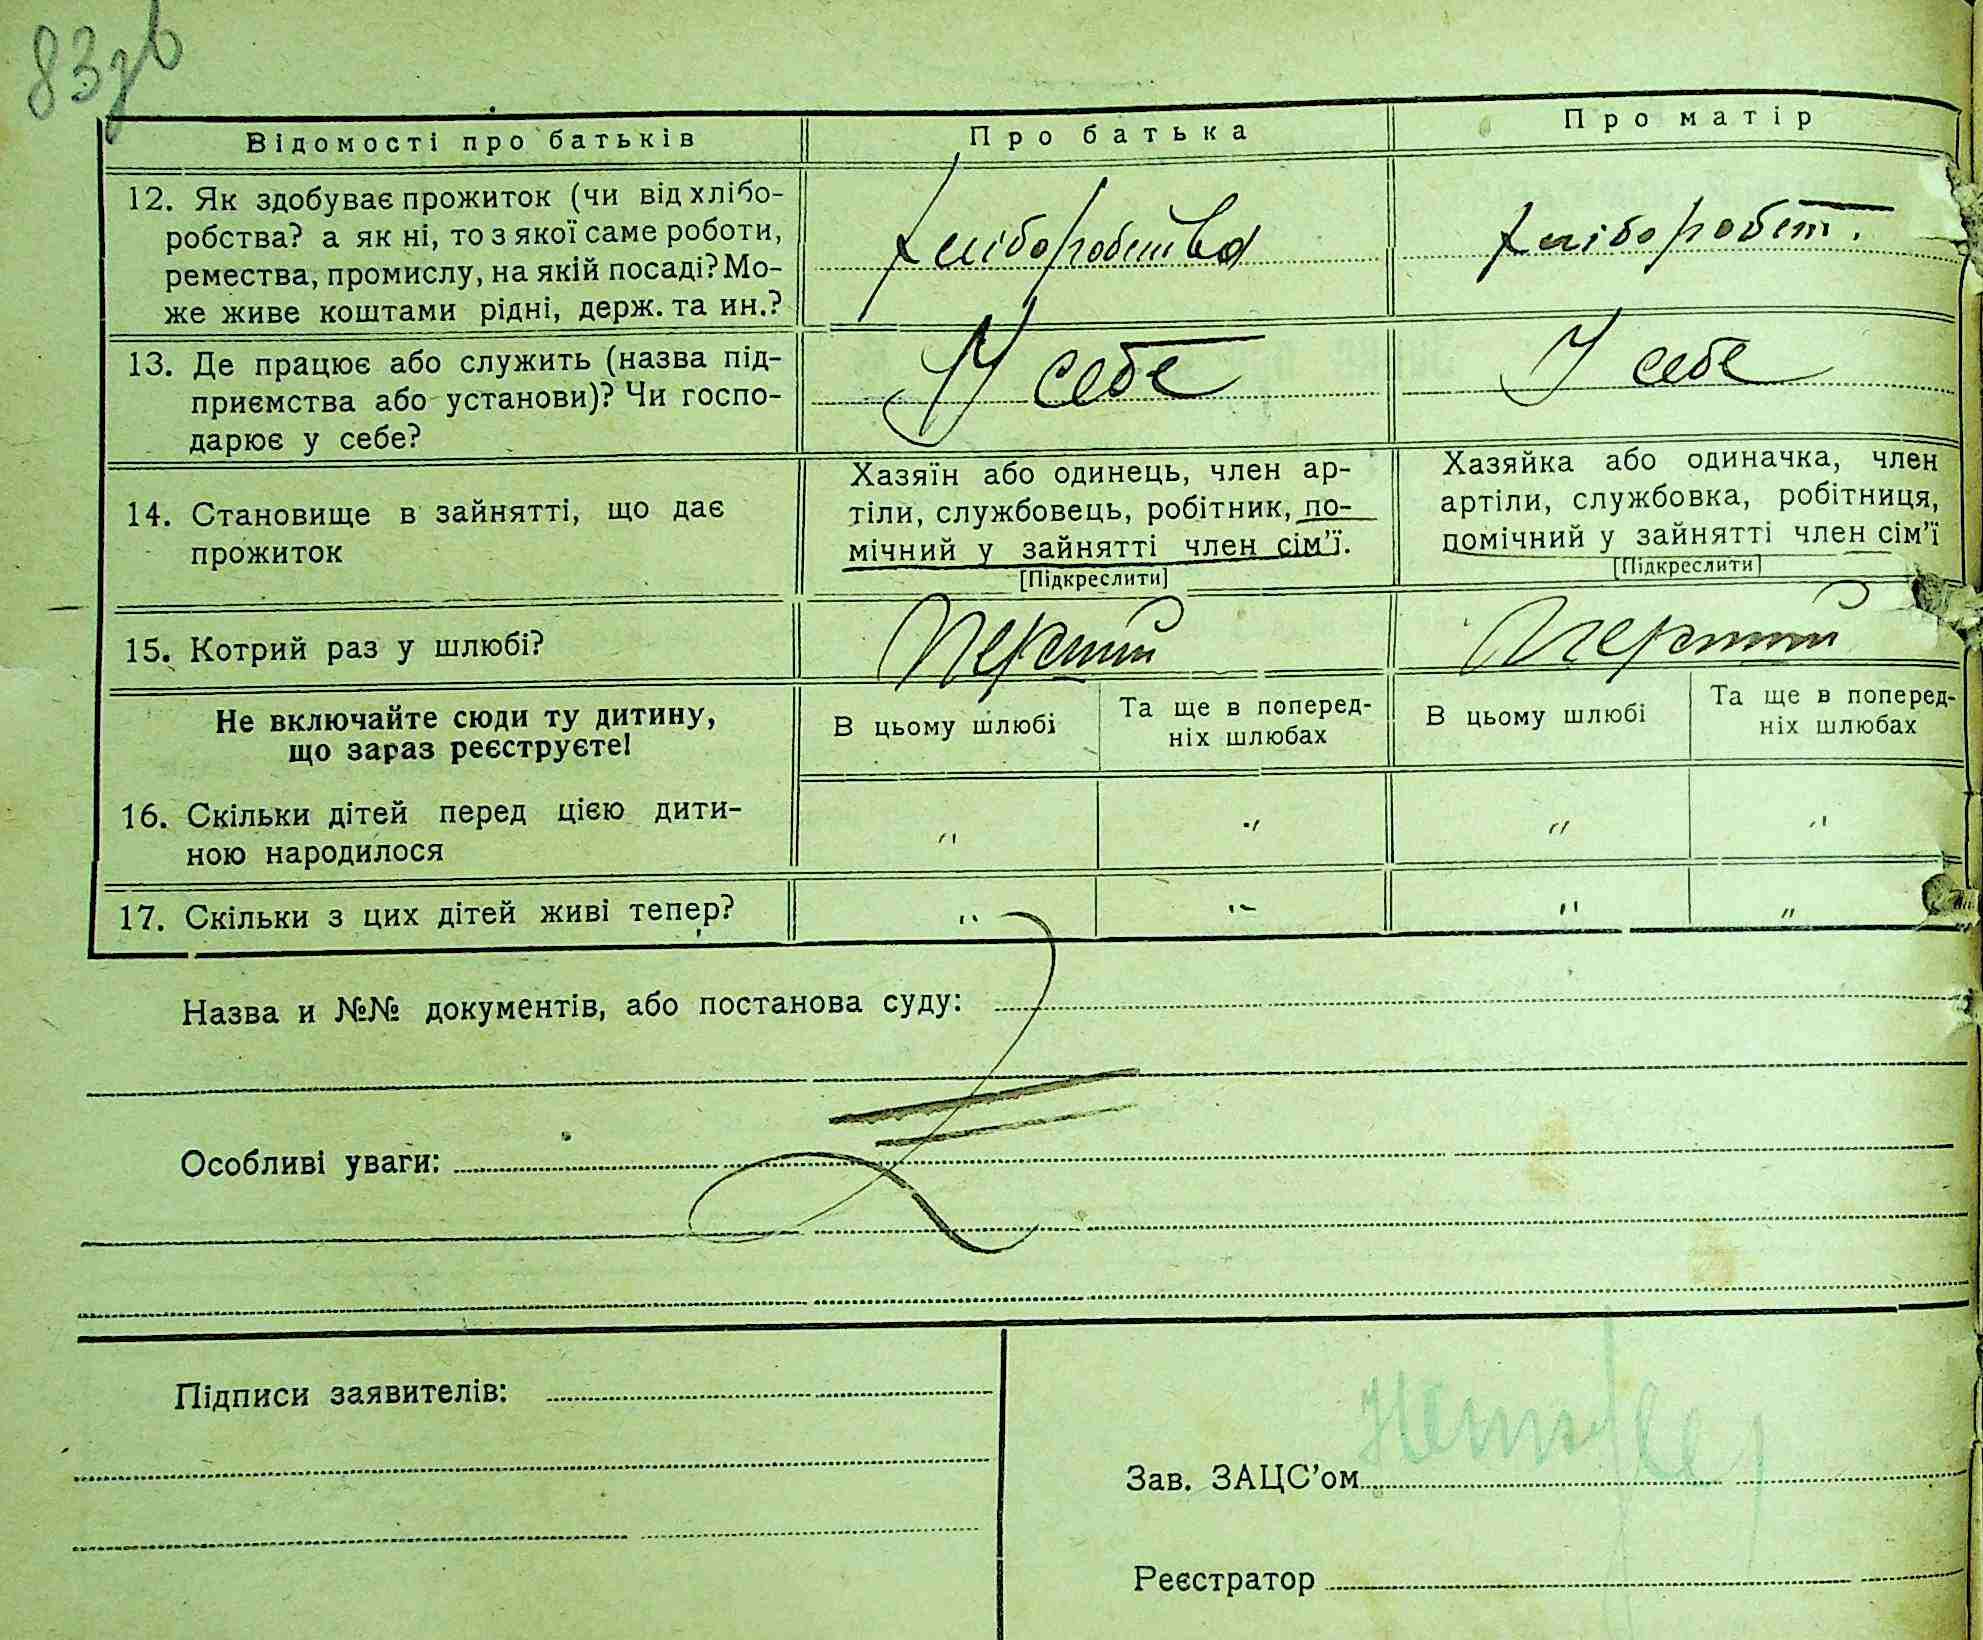 83зв
Відомості про батьків
Про батька
Про матір
12. Як здобуває прожиток (чи від хлібо-
робства? а як ні, то з якої саме роботи,
ремества, промислу, на якій посаді? Мо-
же живе коштами рідні, держ. та ин.?
хліборобства
хлібороб ст.
13. Де працює або служить (назва під-
приємства або установи)? Чи госпо-
дарює у себе?
У себе
У себе
14. Становище в зайнятті, що дає
прожиток
Хазяїн або одинець, член ар-
тіли, службовець, робітник, по-
мічний у зайнятті член сім’ї.
[Підкреслити]
Хазяйка або одиначка, член
артіли, службовка, робітниця,
помічний у зайнятті член сім’ї
[Підкреслити]
15. Котрий раз у шлюбі?
Перший
Перший
Не включайте сюди ту дитину,
що зараз реєструєте!
В цьому шлюбі
Та ще в поперед-
ніх шлюбах
В цьому шлюбі
Та ще в поперед-
ніх шлюбах
16. Скільки дітей перед цією дити-
ною народилося
" " " "
17. Скільки з цих дітей живі тепер?
" " " "
Назва и №№ документів, або постанова суду:
Особливі уваги:
Підписи заявителів:
Зав. ЗАЦС’ом
Реєстратор